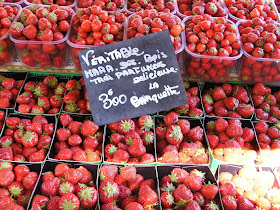 Véritable
MARA des Bois
TRÈS PARFUMÉE
délicieuse
3€00 la
Barquette